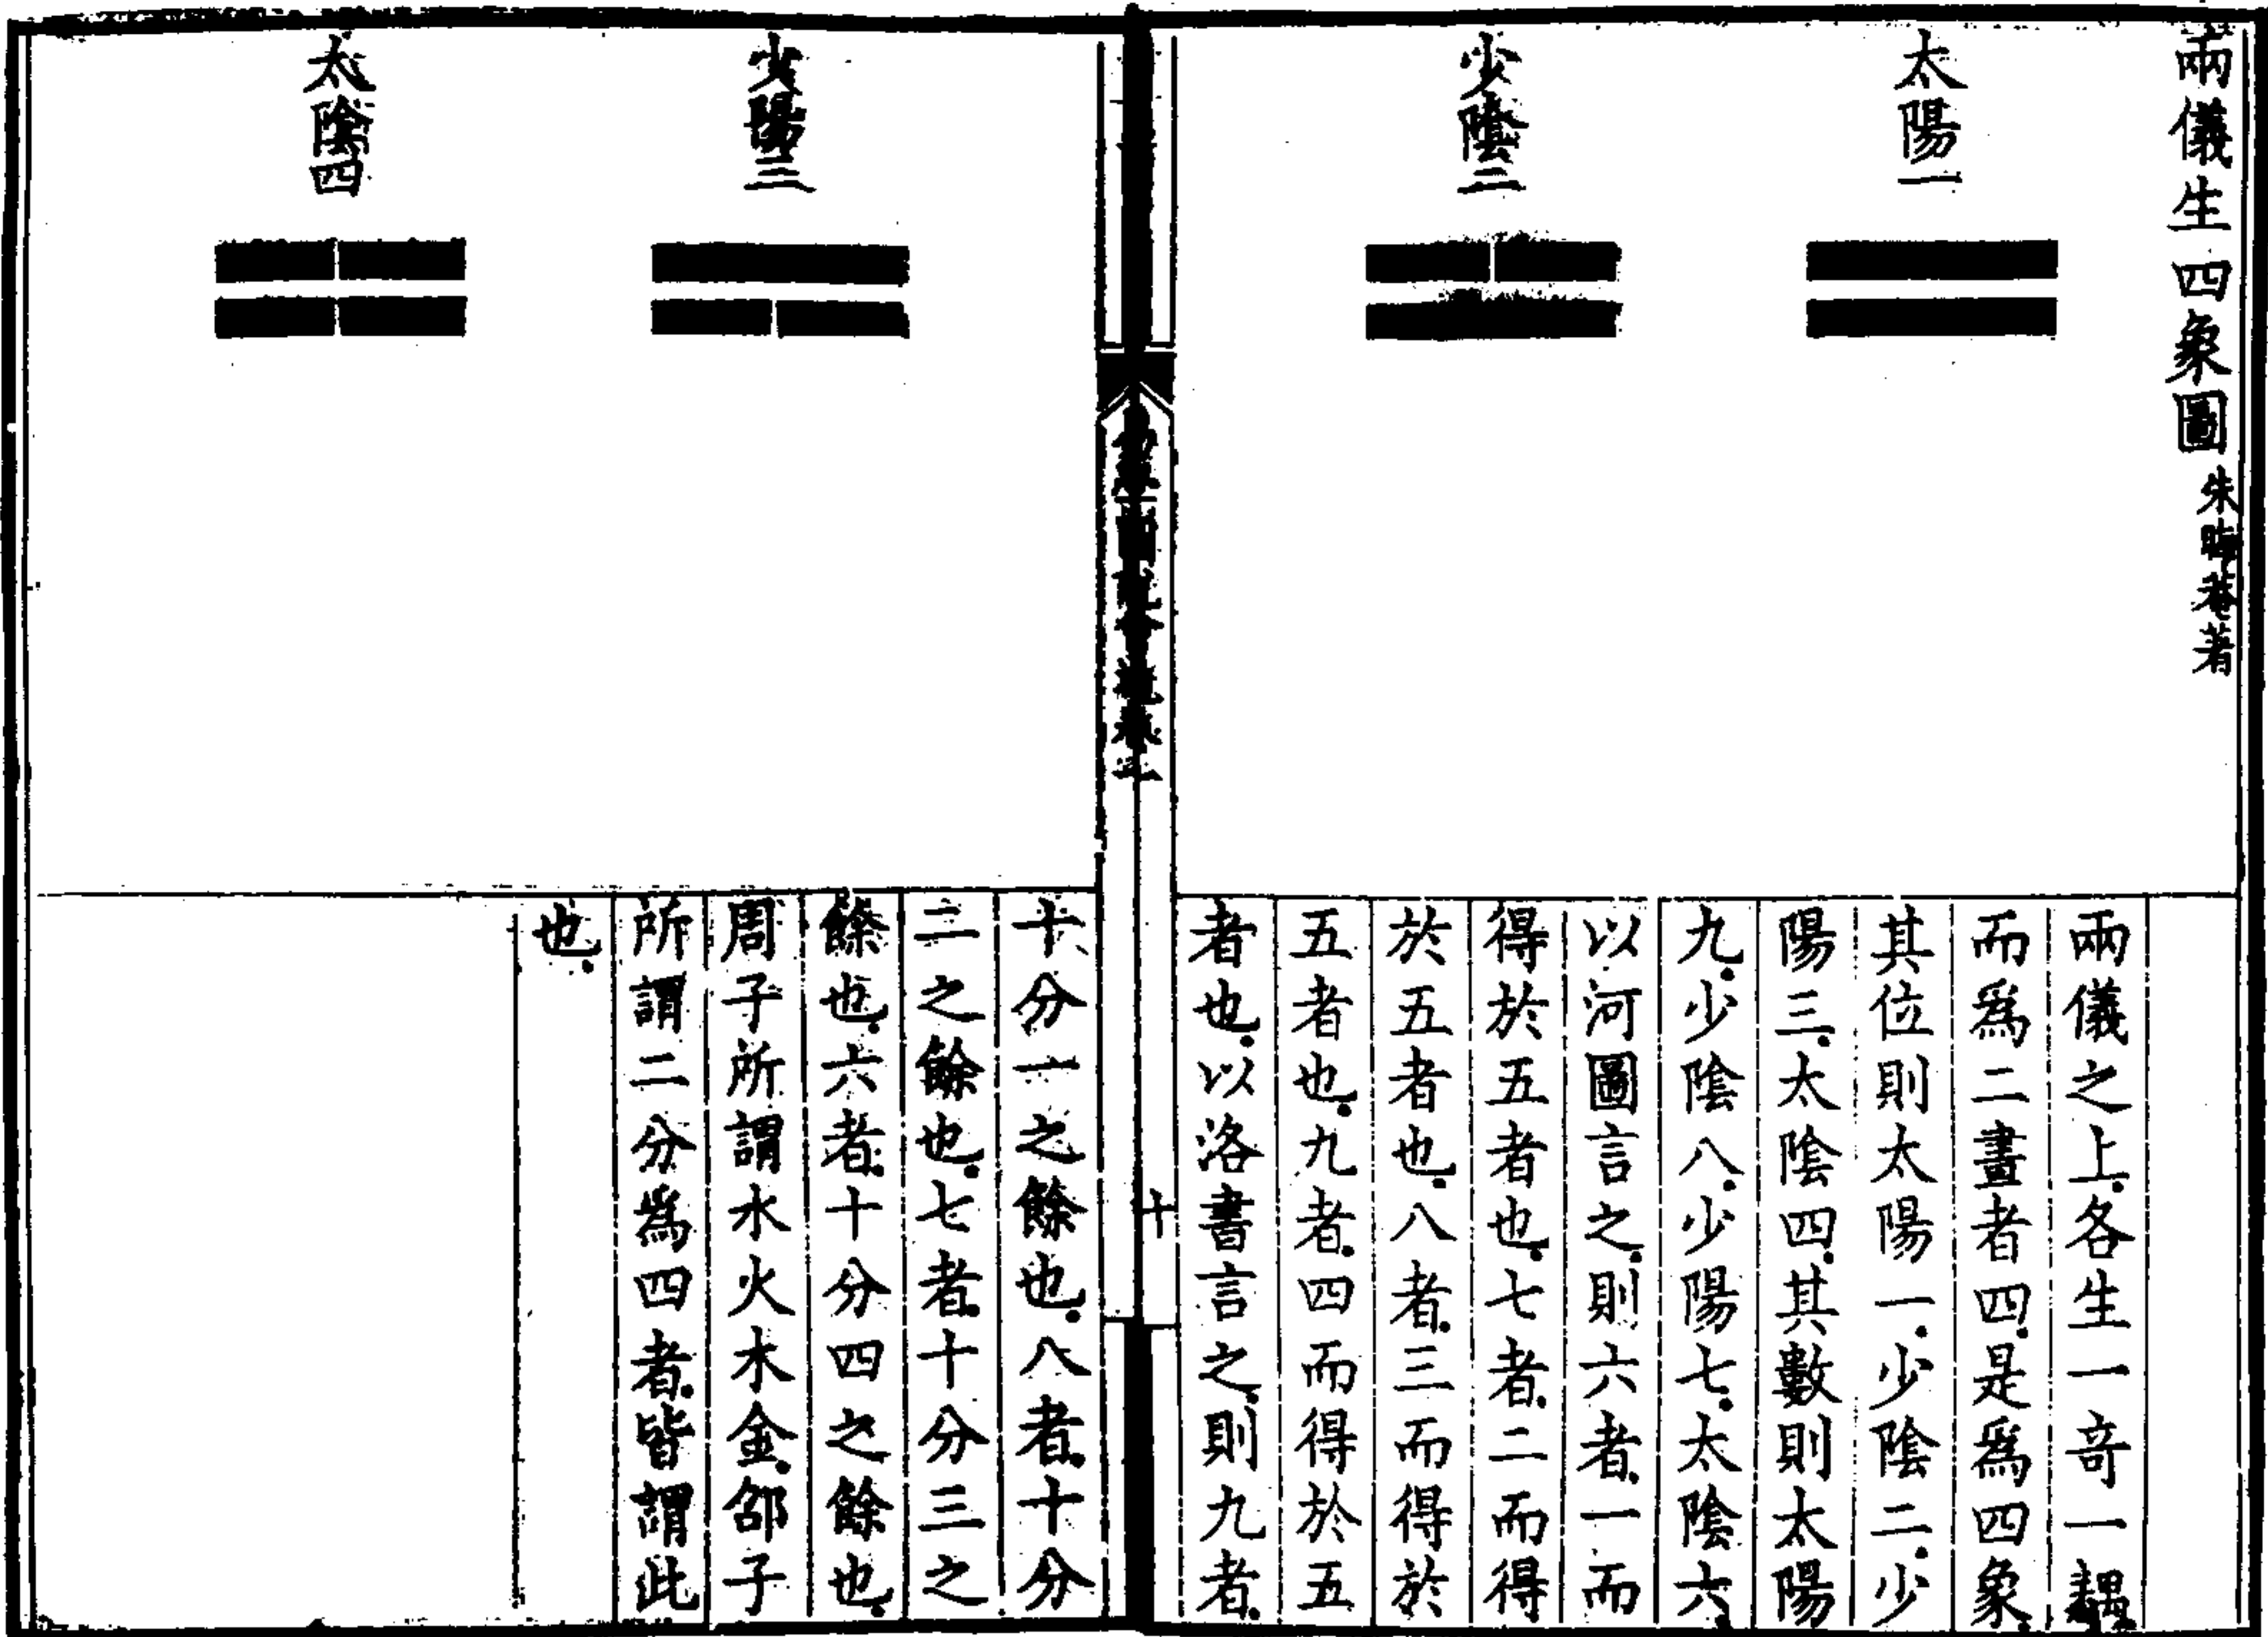 兩儀生四象圖 朱晦菴著
太陽一
少陰二
兩儀之上.各生一竒一耦.
而爲二畫者四.是爲四象.
其位則太陽一.少陰二.少
陽三.太陰四.其數則太陽
九.少陰八.少陽七.太陰六.
以河圖言之.則六者.一而
得於五者也.七者.二而得
於五者也.八者.三而得於
五者也.九者.四而得於五
者也.以洛書言之.則九者.
十
少陽三
太陰四
十分一之餘也.八者.十分
二之餘也.七者.十分三之
餘也.六者.十分四之餘也.
周子所謂水火木金.邵子
所謂二分爲四者.皆謂此
也.